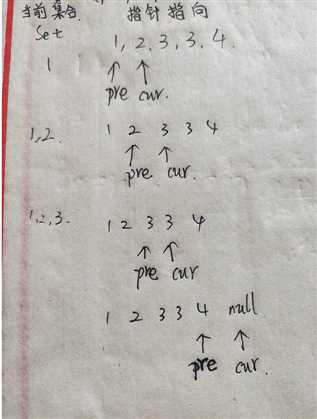 当前集合 指针指向
Set 1, 2, 3, 3, 4.
1
pre cur.
1,2. 1 2 3 3 4
pre cur.
1,2,3. 1 2 3 3 4
pre cur
1 2 3 3 4 null
pre cur.